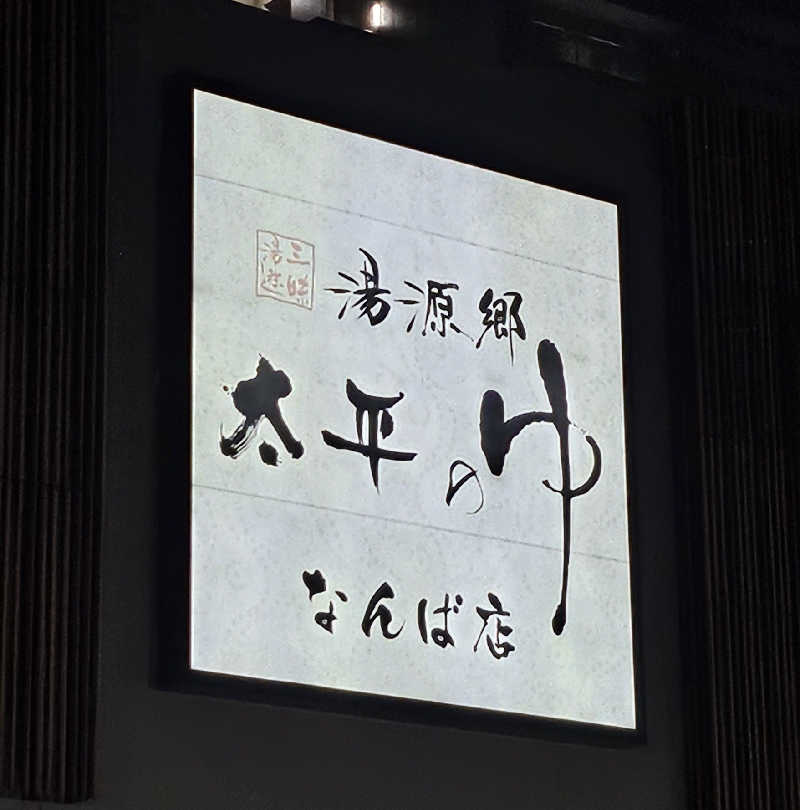 三昧
湯遊
湯源郷
太平のゆ
なんば店